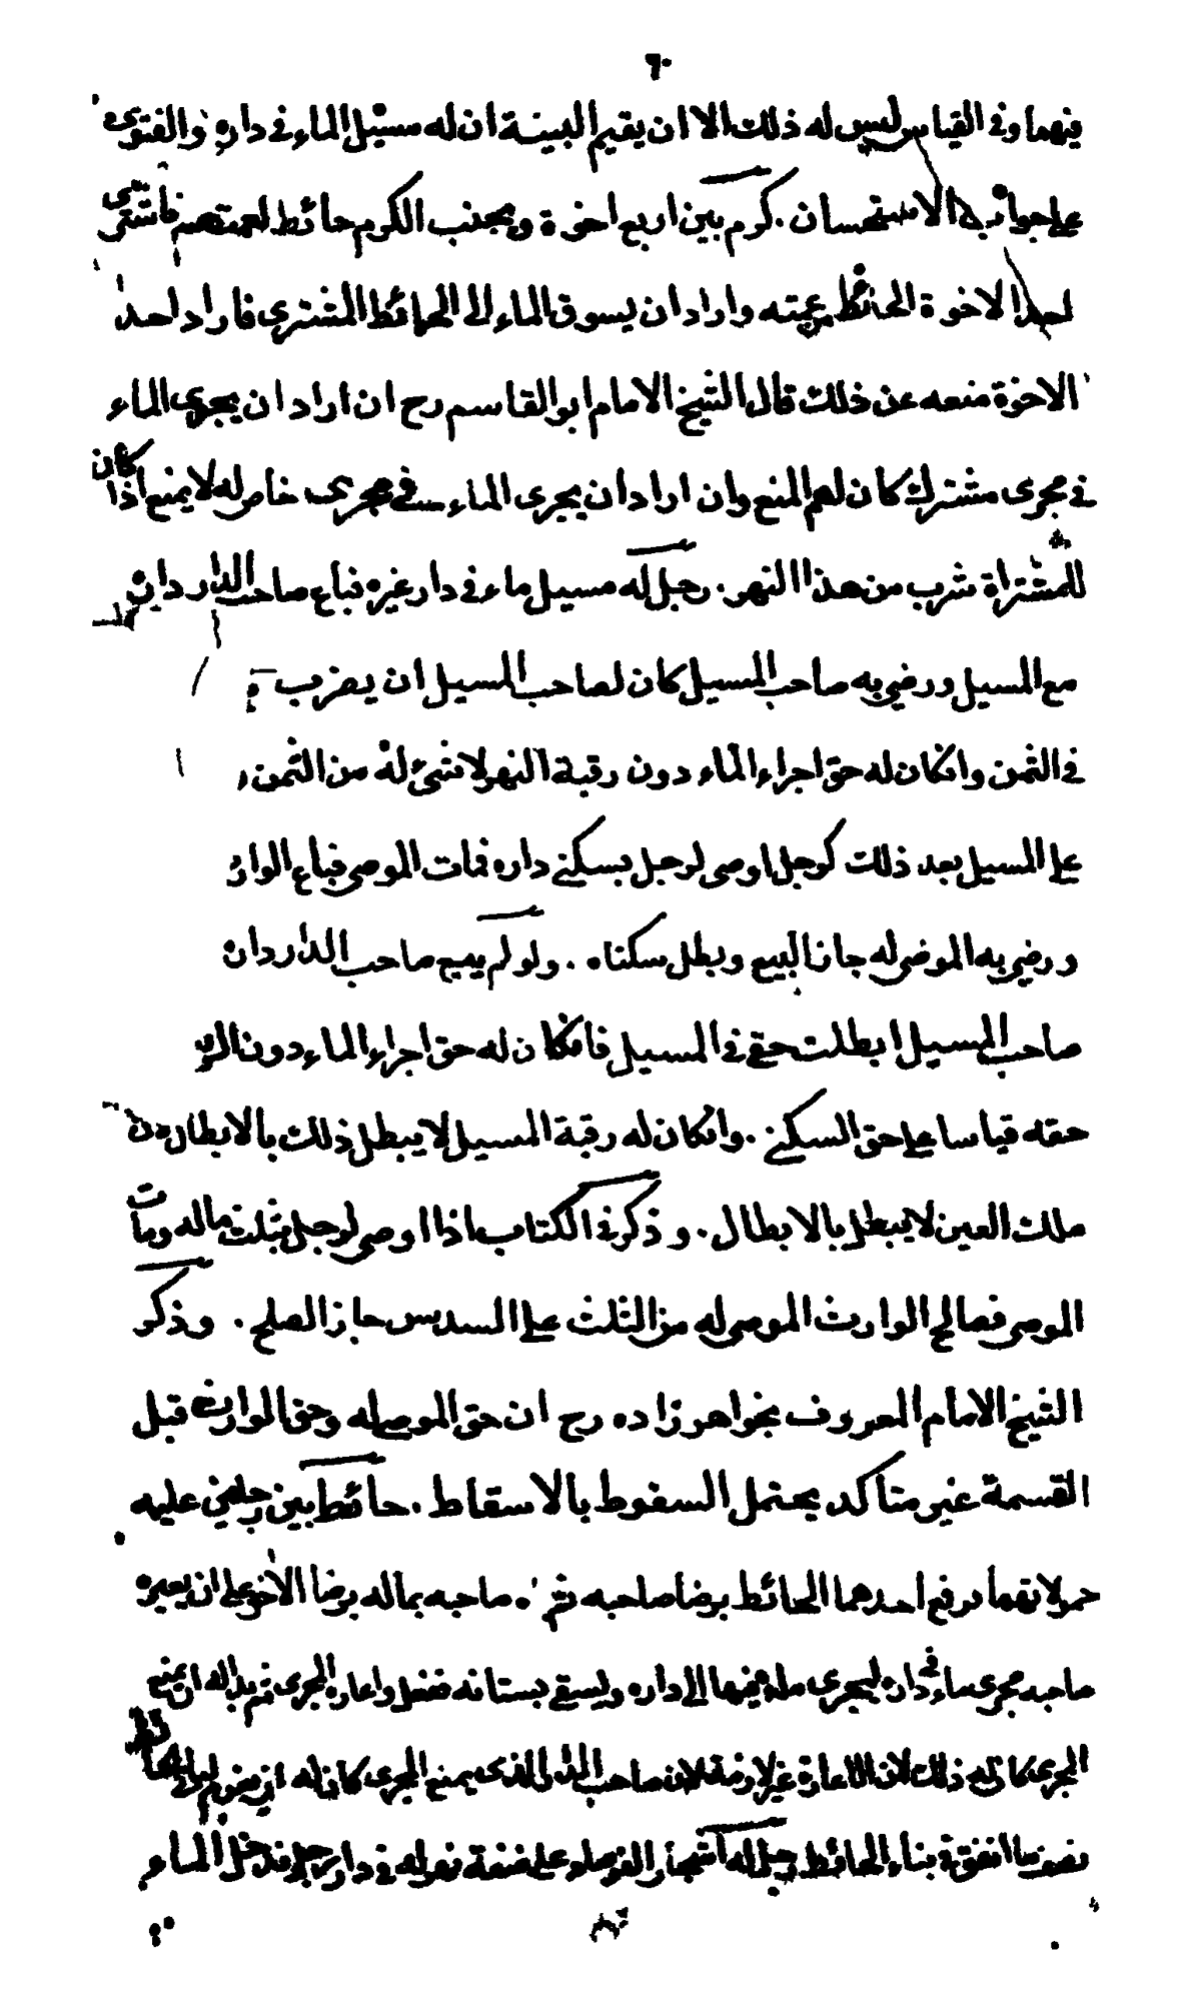 ٦٠
فيهما وفي القياس ليس له ذلك الا ان يقيم البينة ان له مسيل الماء في داره والفتوى
على جواب الاستحسان . كرم بين اربع اخوة وبجنب الكرم حائط لعمتهم فاشترى
احد الاخوة الحائط من عمته واراد ان يسوق الماء الى الحائط المشترى فاراد احد
الاخوة منعه عن ذلك قال الشيخ الامام ابو القاسم رح ان اراد ان يجرى الماء
في مجرى مشترك كان لهم المنع وان اراد ان يجرى الماء في مجرى خاص له لا يمنع اذا كان
للمشتراة شرب من هذا النهر . رجل له مسيل ماء في دار غيره فباع صاحب الدار داره
مع المسيل ورضي به صاحب المسيل كان لصاحب المسيل ان يضرب
في الثمن وانكان له حق اجراء الماء دون رقبة النهر لا شئ له من الثمن
على المسيل بعد ذلك كرجل اوصى لرجل بسكنى داره فمات الموصى فباع الوار
ورضي به الموصى له جاز البيع وبطل سكناه . ولو لم يبع صاحب الدار داره
صاحب المسيل ابطلت حقي في المسيل فانكان له حق اجراء الماء دون
حقه قياسا على حق السكنى . وانكان له رقبة المسيل لا يبطل ذلك بالابطال
ملك العين لا يبطل بالابطال . وذكر في الكتاب اذا اوصى لرجل بثلث ماله ومات
الموصى فصالح الوارث الموصى له من الثلث على السدس جاز الصلح . وذكر
الشيخ الامام المعروف بخواهر زاده رح ان حق الموصى له وحق الوارث قبل
القسمة غير متاكد يحتمل السقوط بالاسقاط . حائط بين رجلين عليه
حمولاتهما فرفع احدهما الحائط برضا صاحبه ثم صاحبه بماله برضا الآخر على ان يعيره
صاحبه مجرى ماء في داره ليجرى ماءه فيها الى داره وليسقي بستانه ففعل واعاره المجرى ثم بدا له ان يمنع
المجرى كان له ذلك لان الاعارة غير لازمة لان صاحب الدار الذى يمنع المجرى كان له ان يغرم لبانى الحائط
نصف ما انفق في بناء الحائط رجل له اشجار الفرصاد على ضفة نهر له في دار رجل فدخل الماء